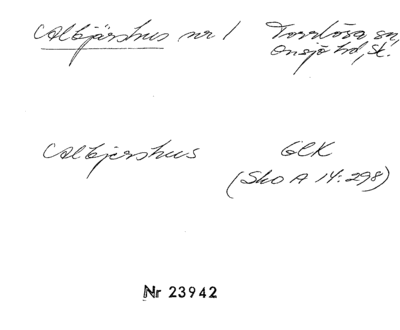 Abbjärshus nr 1 Torrlösa sn,
Onsjö hd, Sk.
Abbjershus GCK
(Sko A 14:298)
Nr 23942